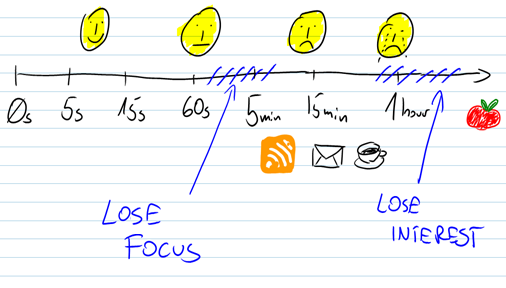 0s 5s 15s 60s 5min 15min 1hour
LOSE
FOCUS
LOSE
INTEREST